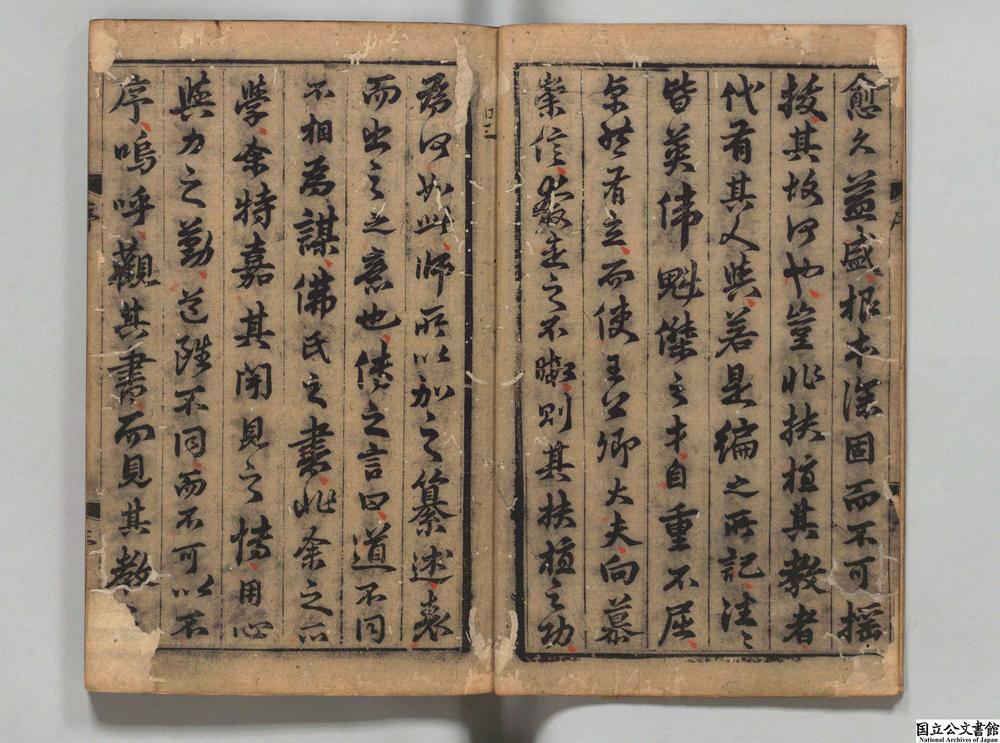 愈久益盛根本深固而不可搖
拔其故何也豈非扶植其教者
代有其人與若是編之所記往〻
皆英偉魁傑之才自重不屈
卓然有立而使王公卿大夫向慕
崇信走之不暇則其扶植之功
爲何如此師所以加之纂述表
而出之之意也傳之言曰道不同
不相爲謀佛氏之書非余之所
學余特嘉其聞見之博用心
與力之勤道雖不同而不可以不
序嗚呼觀其書而見其教
序
三
国立公文書館
National Archives of Japan